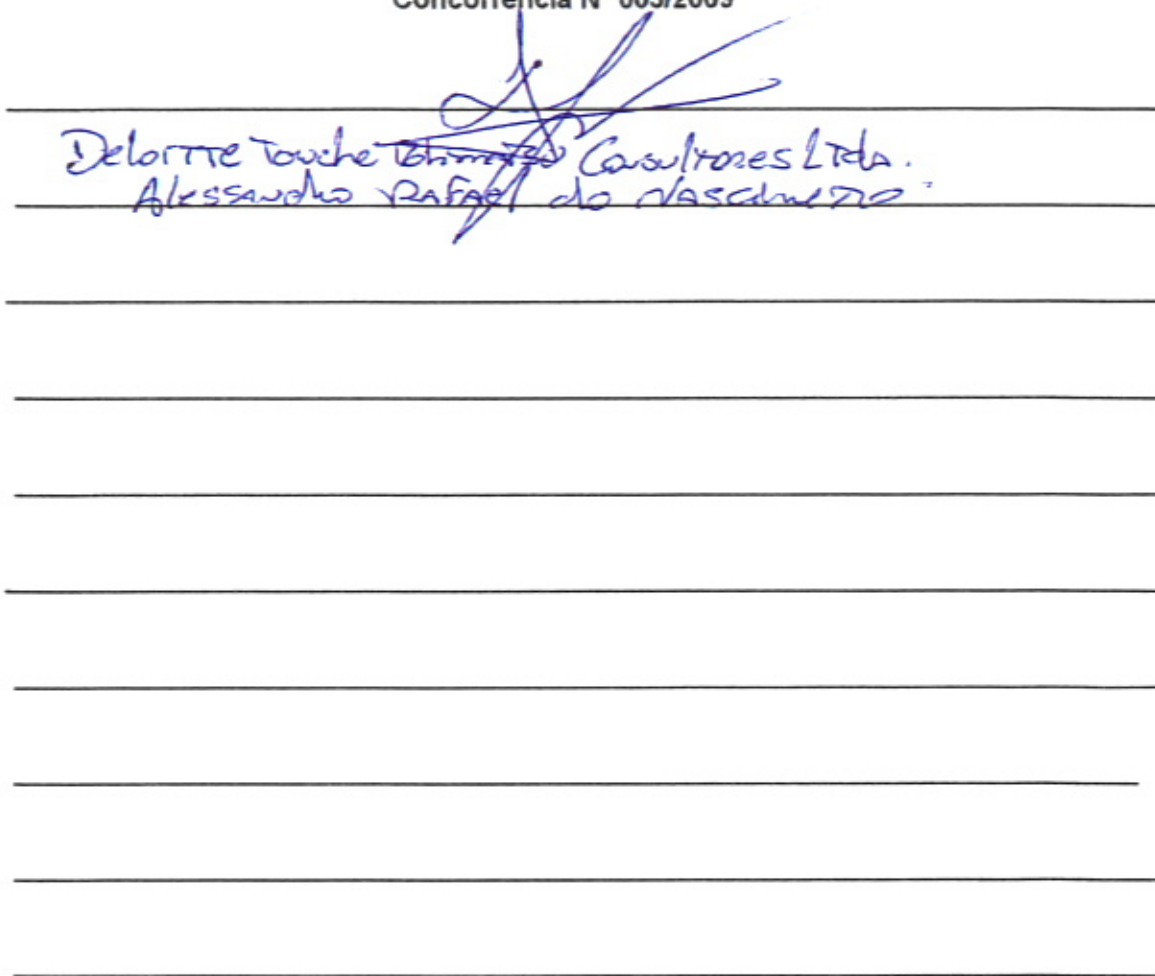 Concorrência Nº 003/2009
Deloitte Touche Tohmatsu Consultores Ltda.
Alessandro Rafael do Nascimento